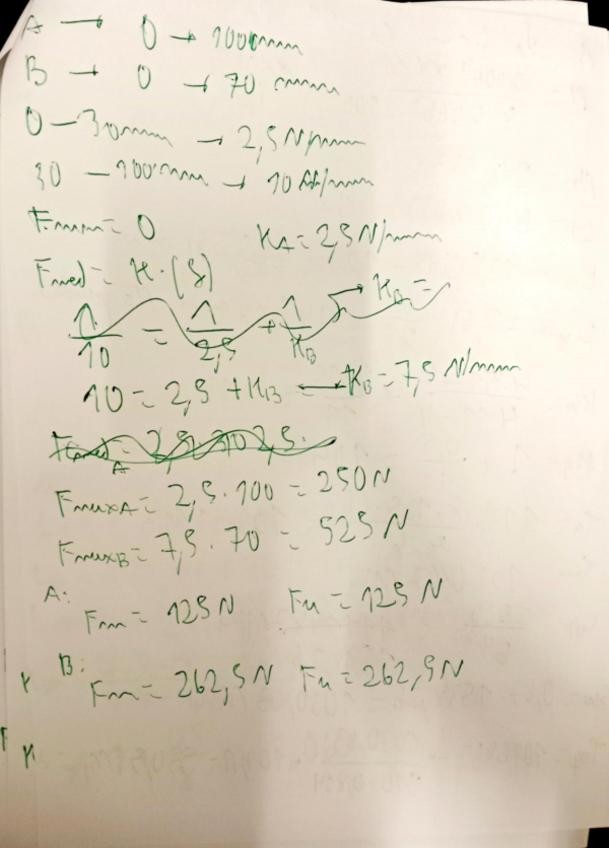 A → 0 → 100 mm
B → 0 → 70 mm
0 - 30 mm → 2,5 N/mm
30 - 100 mm → 10 N/mm
Fmin = 0 KA = 2,5 N/mm
= K · (s)
1/10 = 1/2,5 + 1/KB → KB =
10 = 2,5 + KB → KB = 7,5 N/mm
FmaxA = 2,5 · 100 = 250 N
FmaxB = 7,5 · 70 = 525 N
A:
Fm = 125 N Fa = 125 N
B:
Fm = 262,5 N Fa = 262,5 N